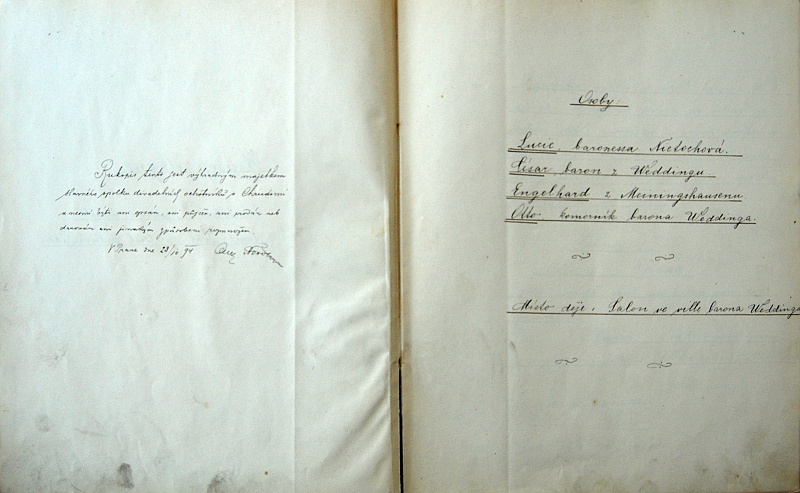 Rukopis tento jest výhradným majetkem
slavného spolku divadelních ochotníků v Chrudimi
a nesmí býti ani opsán, ani půjčen, ani prodán neb
darován ani jinakým způsobem rozmnožen.
V Praze dne 23/10 94
Osoby:
Lucie, baronessa Nietochová.
César baron z Weddingu
Engelhard z Meiningshausenu
Otto komorník barona Weddinga.
Místo děje: Salon ve ville barona Weddinga